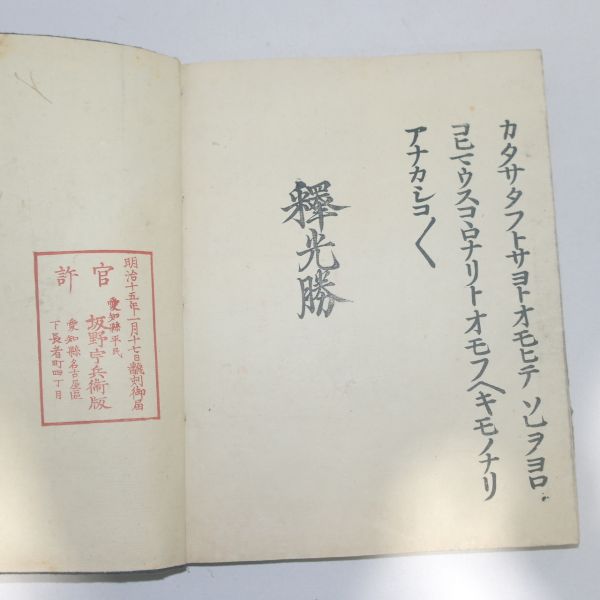 カタサタフトサヨトオモヒテソレヲヨロ
コヒマウスコヽロナリトオモフヘキモノナリ
アナカシコ〱
釋光勝
明治十五年一月十七日飜刻御届
愛知縣平民
坂野宇兵衞版
愛知縣名古屋區
下長者町四丁目
官許